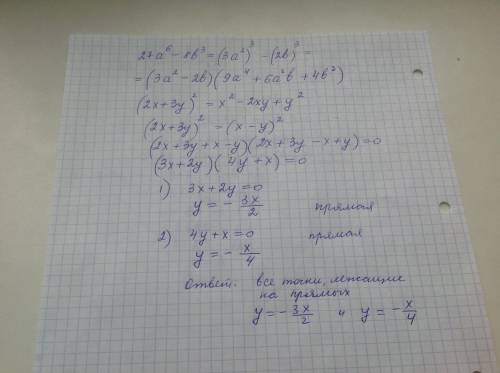 27a⁶ - 8b³ = (3a²)³ - (2b)³ =
= (3a² - 2b)(9a⁴ + 6a²b + 4b²)
(2x+3y)² = x² - 2xy + y²
(2x+3y)² = (x - y)²
(2x+3y+x-y)(2x+3y-x+y)=0
(3x+2y)(4y+x)=0
1) 3x+2y=0
y = - 3x/2 прямая
2) 4y+x=0 прямая
y = - x/4
Ответ: все точки, лежащие
на прямых
y = - 3x/2 и y = - x/4